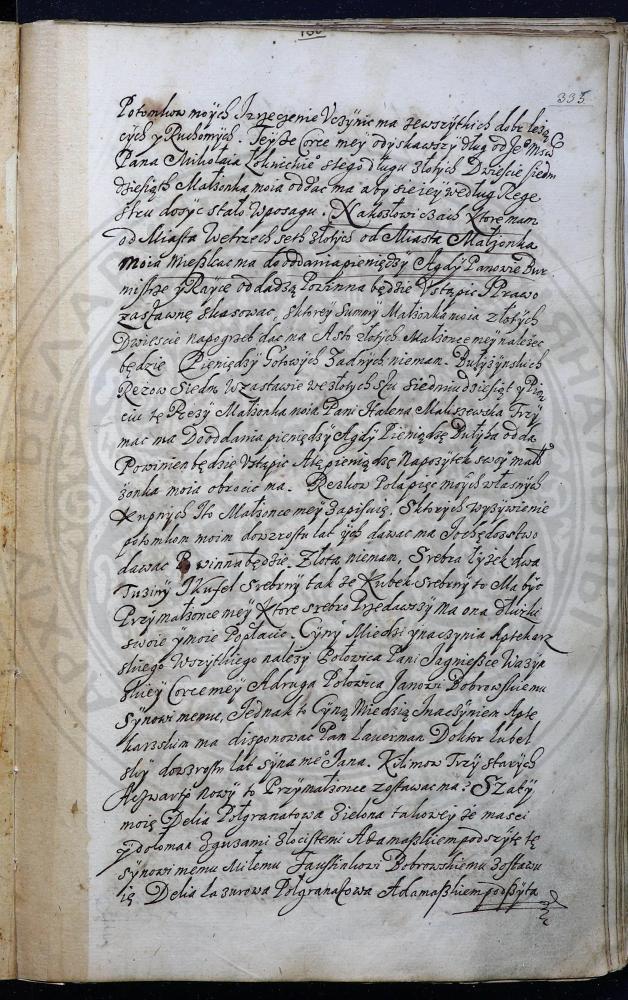 333
Potomkow moÿch Irzÿrzenie Vczÿnic ma zewszÿtkich dobr leżą
cÿch ÿ Ruchomÿch. Teÿże Corce meÿ odÿskawszÿ dług od Je° Mści
Pana Mikołaia Łoknickie° ztego długu złotÿch Dwiescie siedm
dziesiąth Małżonka moia oddać ma abÿ sie ieÿ według Rege
stru dosÿc stało Wposagu. Na kozłowiczach ktore mam
od Miasta Wetrzech seth złotÿch od Miasta Małżonka
moia mieszkac ma do oddania pieniędzÿ Agdÿ Panowie Bur
mistrze ÿ Raÿce oddadzą Powinna będzie Vstąpic I Prawo
zastawne skasowac, Sktoreÿ Summÿ Małżonka moia złotÿch
Dwiescie napogrzeb dac ma A sto złotÿch Małżonce meÿ należec
będzie Pieniędzÿ Gotowÿch żadnÿch nieman. Butÿżÿnskich
Rezow Siedm Wzastawie wezłotÿch stu siedmiudziesiąt ÿ Pię
ciu tę Rezÿ Małżonka moia Pani Halena Maliszewska Trzÿ
mac ma Do oddania pieniędzÿ Agdÿ Pieniędze Butÿża odda
Powinien będzie Vstąpic A te pieniędze Napożÿtek swoÿ mał
żonka moia obrocic ma. Rezkow Pola pięc moÿch własnÿch
kupnÿch Ito Małżonce meÿ Zapisuię, Sktorÿch wÿżÿwienie
potomkom moim dowzrostu lat ÿch dawac ma Iochędostwo
dawac Powinna będzie. Złota niemam, Srebra łÿżek dwa
Tuzinÿ I Kufel srebrnÿ tak że Kubek Srebrnÿ to Ma bÿc
Przÿ małżonce meÿ Ktore srebro Przedawszÿ ma ona dłużki
swoie ÿ moie Popłacic. Cÿnÿ Miedzi ÿ naczÿnia Aptekarz
skiego Wszÿtkiego należÿ Połowica Pani Iagnieszce
Corce meÿ A druga Połowica Janowi Bobrowskiemu
Sÿnowi memu, Iednak to Cÿną Miedzią Inaczÿniem Apte
karzskim ma disponowac Pan Lauerman Doktor lubel
skÿ dowzrostu lat sÿna me° Jana. Kilimow Trzÿ starÿch
Aczwartÿ nowÿ to Przÿmałżonce zostawac ma. Szatÿ
moię Delia Połgranatowa zielona takoweÿ że masci
ÿ doloman Zguzami złocistemi Adamaszkiem podszÿtę tę
sÿnowi memu Miłemu Faustinkowi Bobrowskiemu Zostawu
ię Delia lazurowa Połgranatowa Adamaszkiem podszÿta